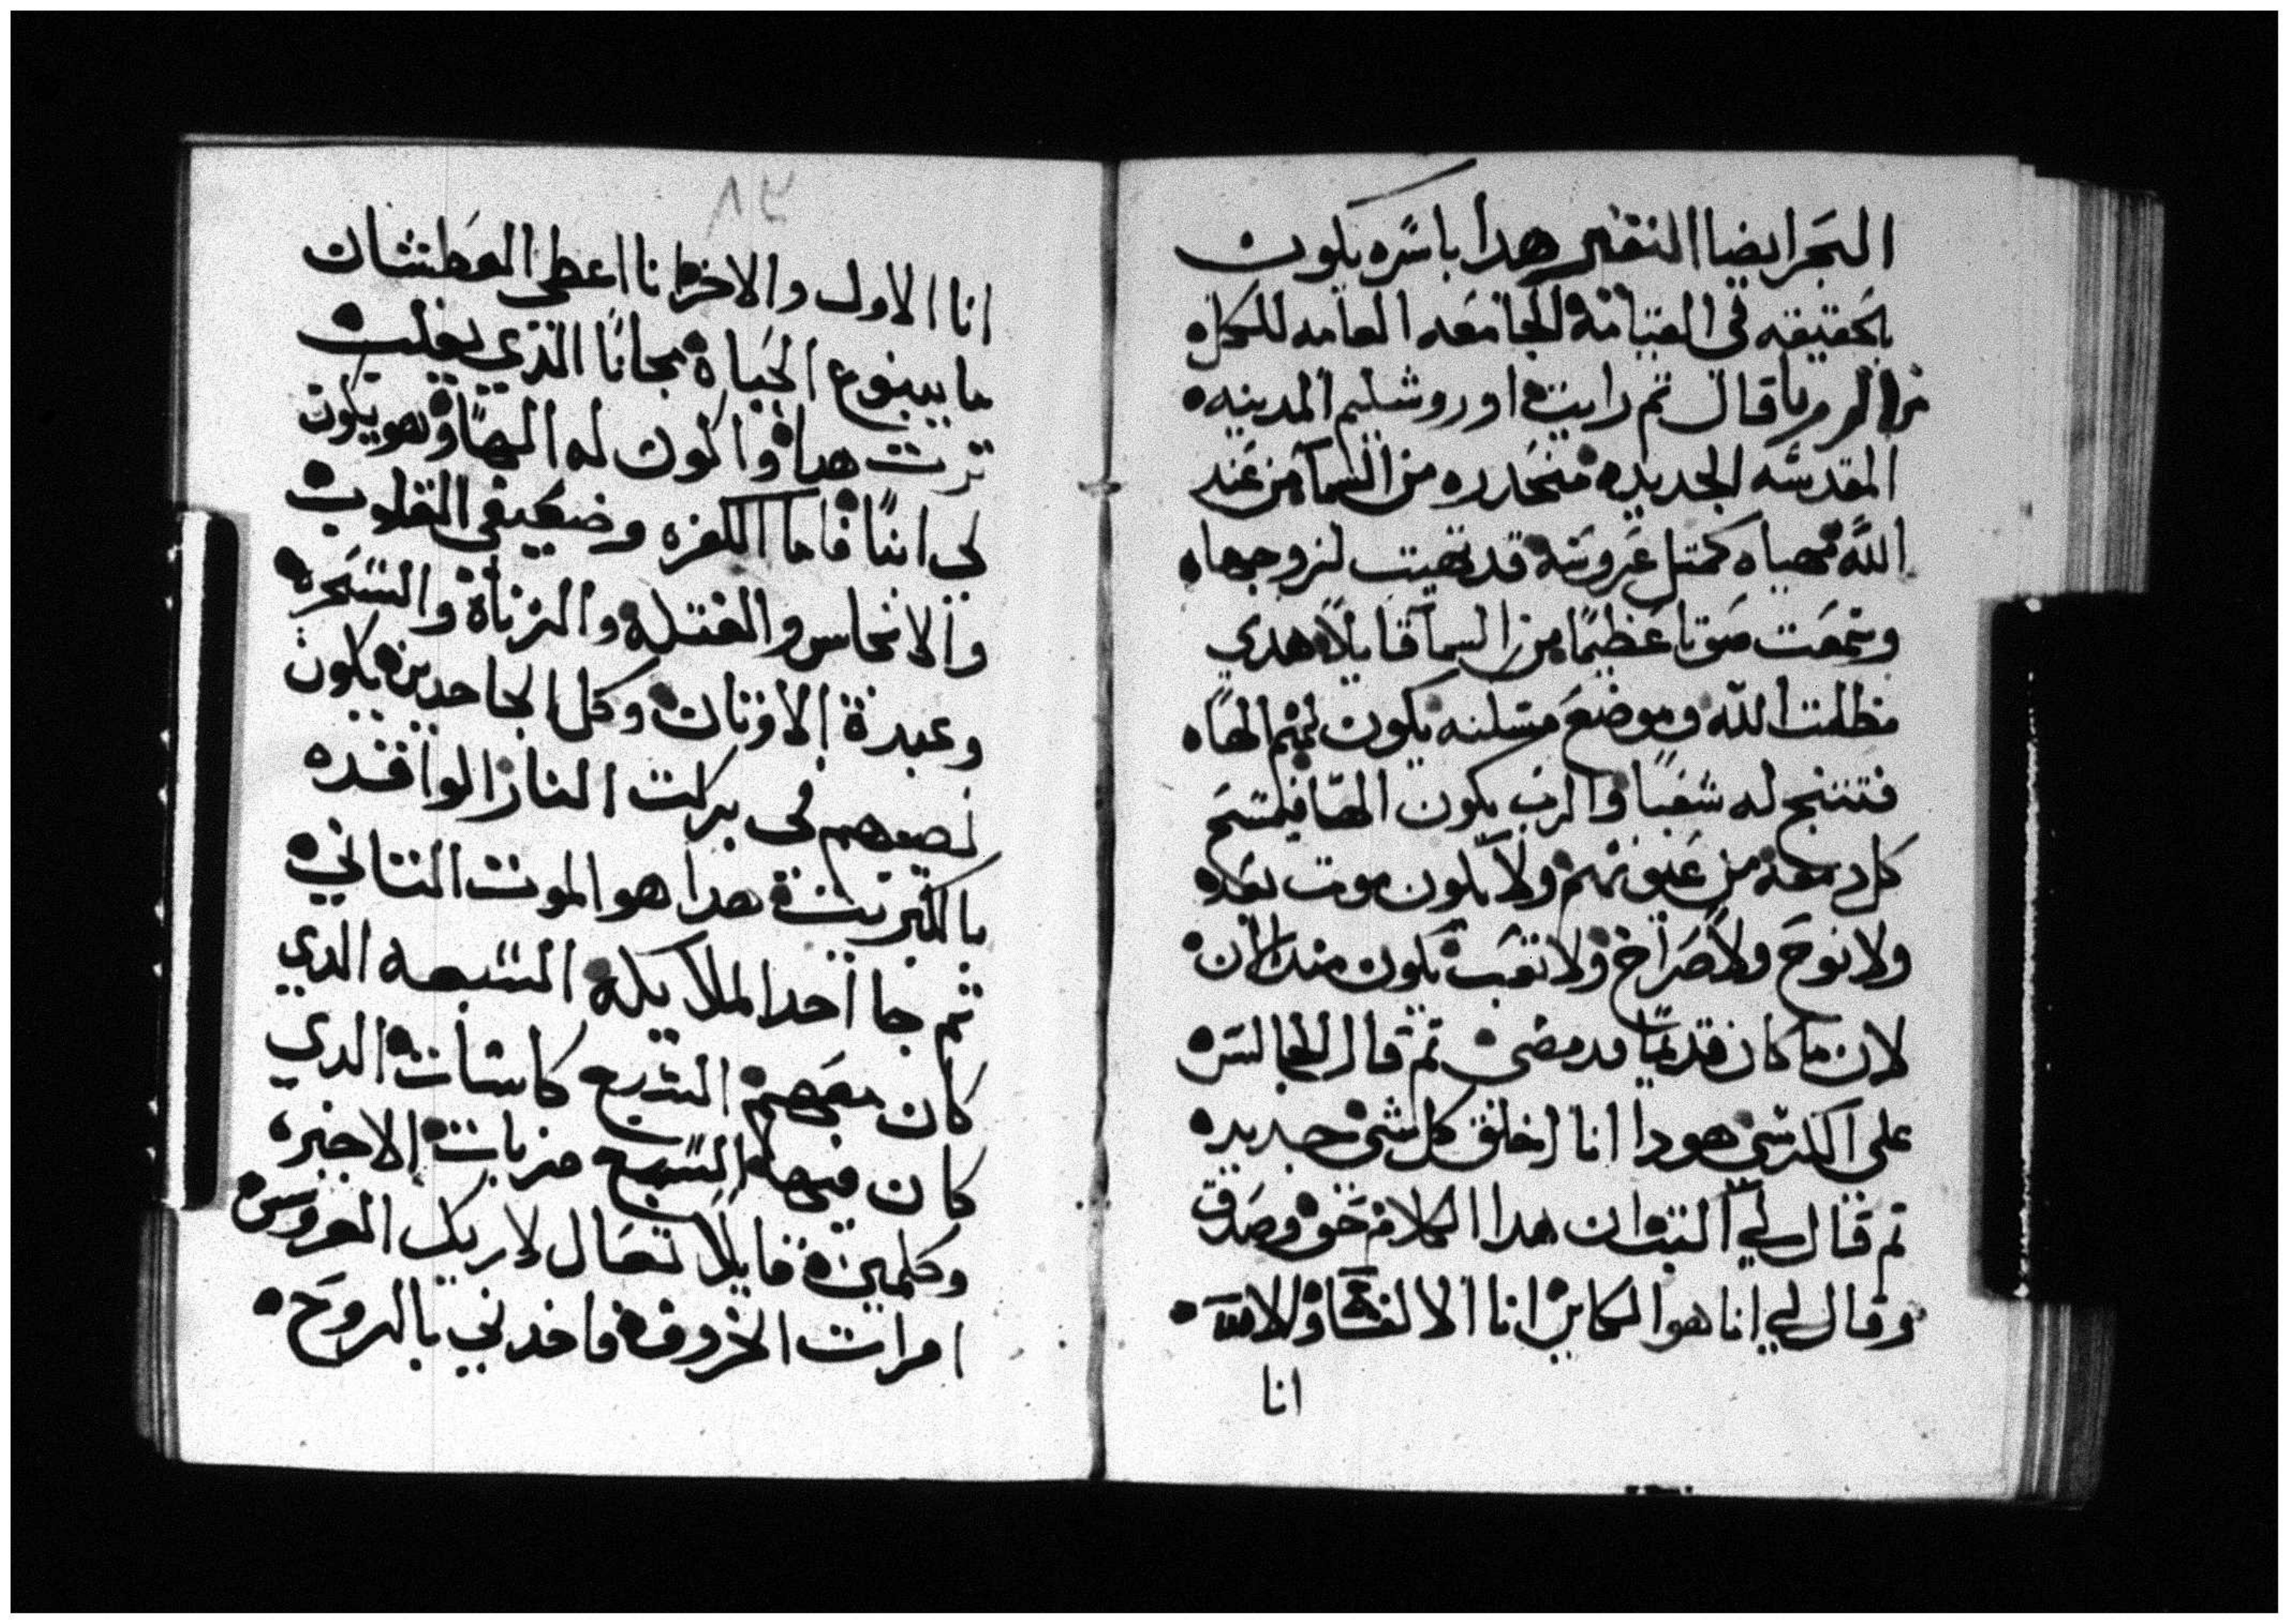 البحر ايضا التفسير هدا باسره يكون
بحقيقته في القيامة الجامعه العامه للكل
من الرويا قال تم رايت اوروشليم المدينه
المقدسه الجديده منحدره من السما من عند
الله مهياه كمتل عروسه قد تهيت لزوجها
وسمعت صوتا عظيما من السما قايلا هدي
مظلت الله وموضع مسكنه يكون لهم الها
له شعبا والرب يكون الها فيمسح
كل دمعة من عيونهم ولا يكون موت بعد
ولا نوح ولا صراخ ولا تعب يكون مند الان
لان ما كان قديما قد مضى تم قال الجالس
على الكرسي هودا انا اخلق كل شي جديد
تم قال لي اكتب ان هدا الكلام حق وصدق
وقال لي انا هو الكاين انا الالفا والا
انا
٦٨
انا الاول والاخر انا اعطي العطشان
ما ينبوع الحياة مجانا الذي يغلب
يرت هدا واكون له الها وهو يكون
لي ابنا فاما الكفره وضعيفي القلوب
والانجاس والقتله والزناة والسحره
وعبدة الاوتان وكل الجاحدين يكون
نصيبهم في بركت النار الواقده
بالكبريت هدا هو الموت التاني
تم جا احد الملايكه السبعه الدي
كان معهم السبع كاسات الدي
كان فيها السبع ضربات الاخيره
وكلمني قايلا تعال لاريك العروس
امرات الخروف فاخدني بالروح